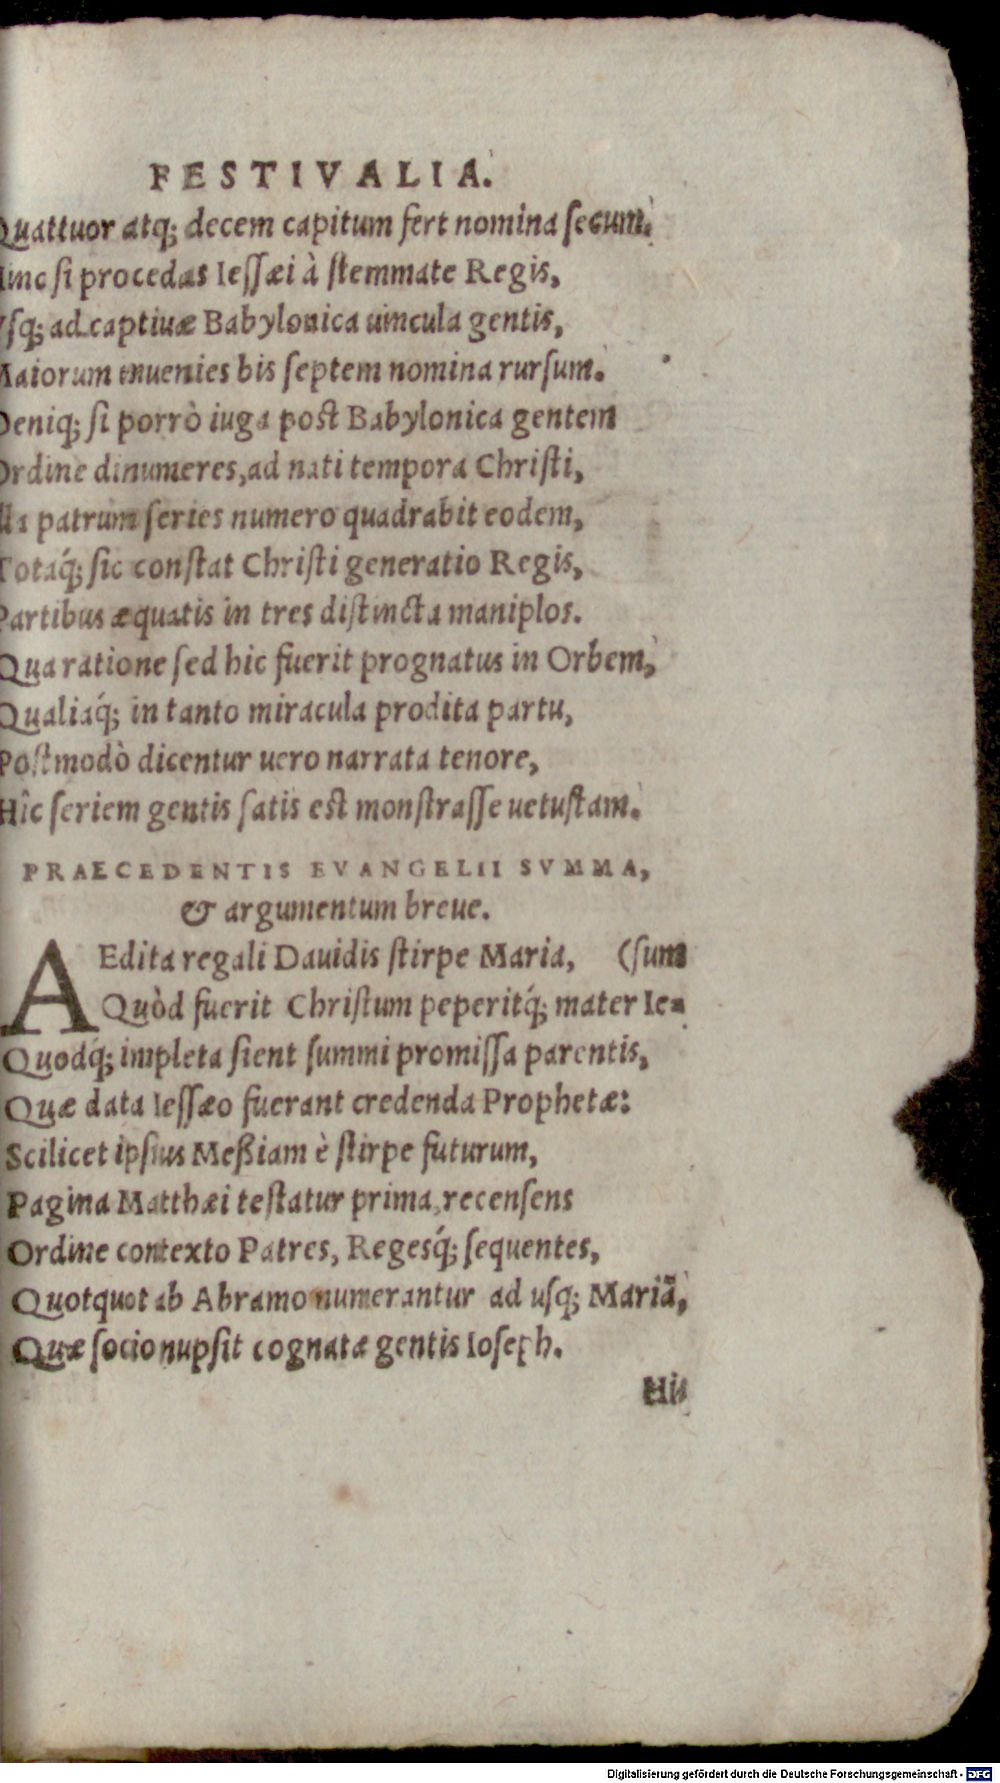 FESTIVALIA.
Quattuor atq; decem capitum fert nomina secum.
Hinc si procedas Iessæi à stemmate Regis,
Vsq; ad captiuæ Babylonica uincula gentis,
Maiorum inuenies bis septem nomina rursum.
Deniq; si porrò iuga post Babylonica gentem
Ordine dinumeres, ad nati tempora Christi,
Illa patrum series numero quadrabit eodem,
Totaq́; sic constat Christi generatio Regis,
Partibus æquatis in tres distincta maniplos.
Qua ratione sed hic fuerit prognatus in Orbem,
Qualiaq́; in tanto miracula prodita partu,
Postmodò dicentur uero narrata tenore,
Hîc seriem gentis satis est monstrasse uetustam.
PRAECEDENTIS EVANGELII SVMMA,
& argumentum breue.
AEdita regali Dauidis stirpe Maria, (sum
Quòd fuerit Christum peperitq́; mater Ie-
Quodq́; impleta sient summi promissa parentis,
Quæ data Iessæo fuerant credenda Prophetæ:
Scilicet ipsius Meßiam è stirpe futurum,
Pagina Matthæi testatur prima, recensens
Ordine contexto Patres, Regesq́; sequentes,
Quotquot ab Abramo numerantur ad usq; Mariã,
Quæ socio nupsit cognatæ gentis Ioseph.
His
Digitalisierung gefördert durch die Deutsche Forschungsgemeinschaft - DFG